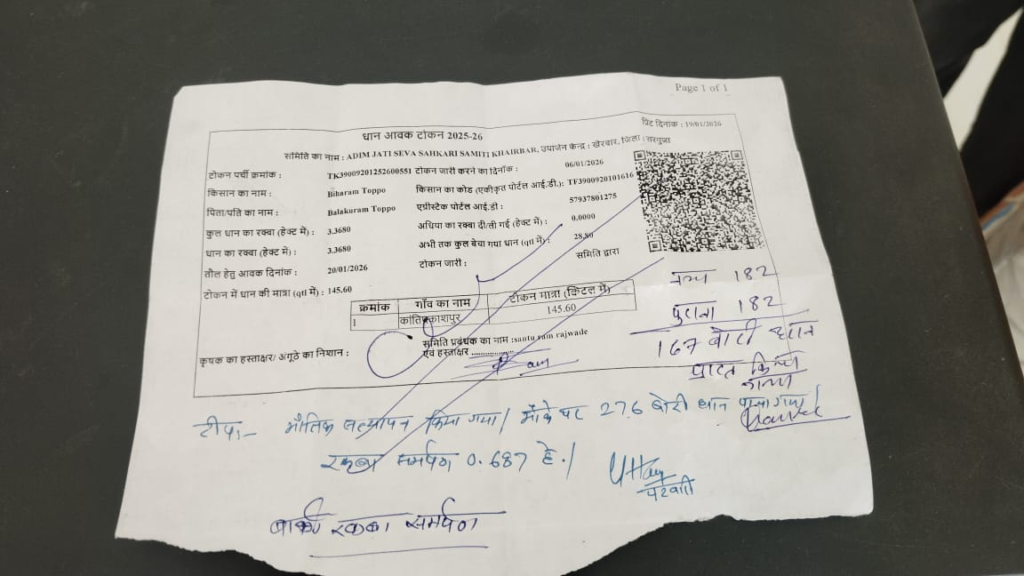 Page 1 of 1
प्रिंट दिनांक : 19/01/2026
धान आवक टोकन 2025-26
समिति का नाम : ADIM JATI SEVA SAHKARI SAMITI KHAIRBAR, उपार्जन केन्द्र : खैरवार, जिला : सरगुजा
टोकन पर्ची क्रमांक : TK39009201252600551 टोकन जारी करने का दिनांक : 06/01/2026
किसान का नाम : Biharam Toppo किसान का कोड (एकीकृत पोर्टल आई.डी.): TF3900920101616
पिता/पति का नाम : Balakuram Toppo एग्रीस्टेक पोर्टल आई.डी : 57937801275
कुल धान का रकबा (हेक्ट में): 3.3680 अधिया का रकबा दी/ली गई (हेक्ट में) : 0.0000
धान का रकबा (हेक्ट में): 3.3680 अभी तक कुल बेचा गया धान (qtl में): 28.80
तौल हेतु आवक दिनांक : 20/01/2026 टोकन जारी : समिति द्वारा
टोकन में धान की मात्रा (qtl में) : 145.60
क्रमांक गाँव का नाम टोकन मात्रा (क्विंटल में)
1 कांतिप्रकाशपुर 145.60
समिति प्रबंधक का नाम :santu ram rajwade
कृषक का हस्ताक्षर/ अंगूठे का निशान : एवं हस्ताक्षर
नया 182
पुराना 182
167 बोरी धान
प्राप्त किया
गया
टीप:- भौतिक सत्यापन किया गया। मौके पर 276 बोरी धान पाया गया।
रकबा समर्पण 0.687 हे.।
पटवारी
बाकी रकबा समर्पण